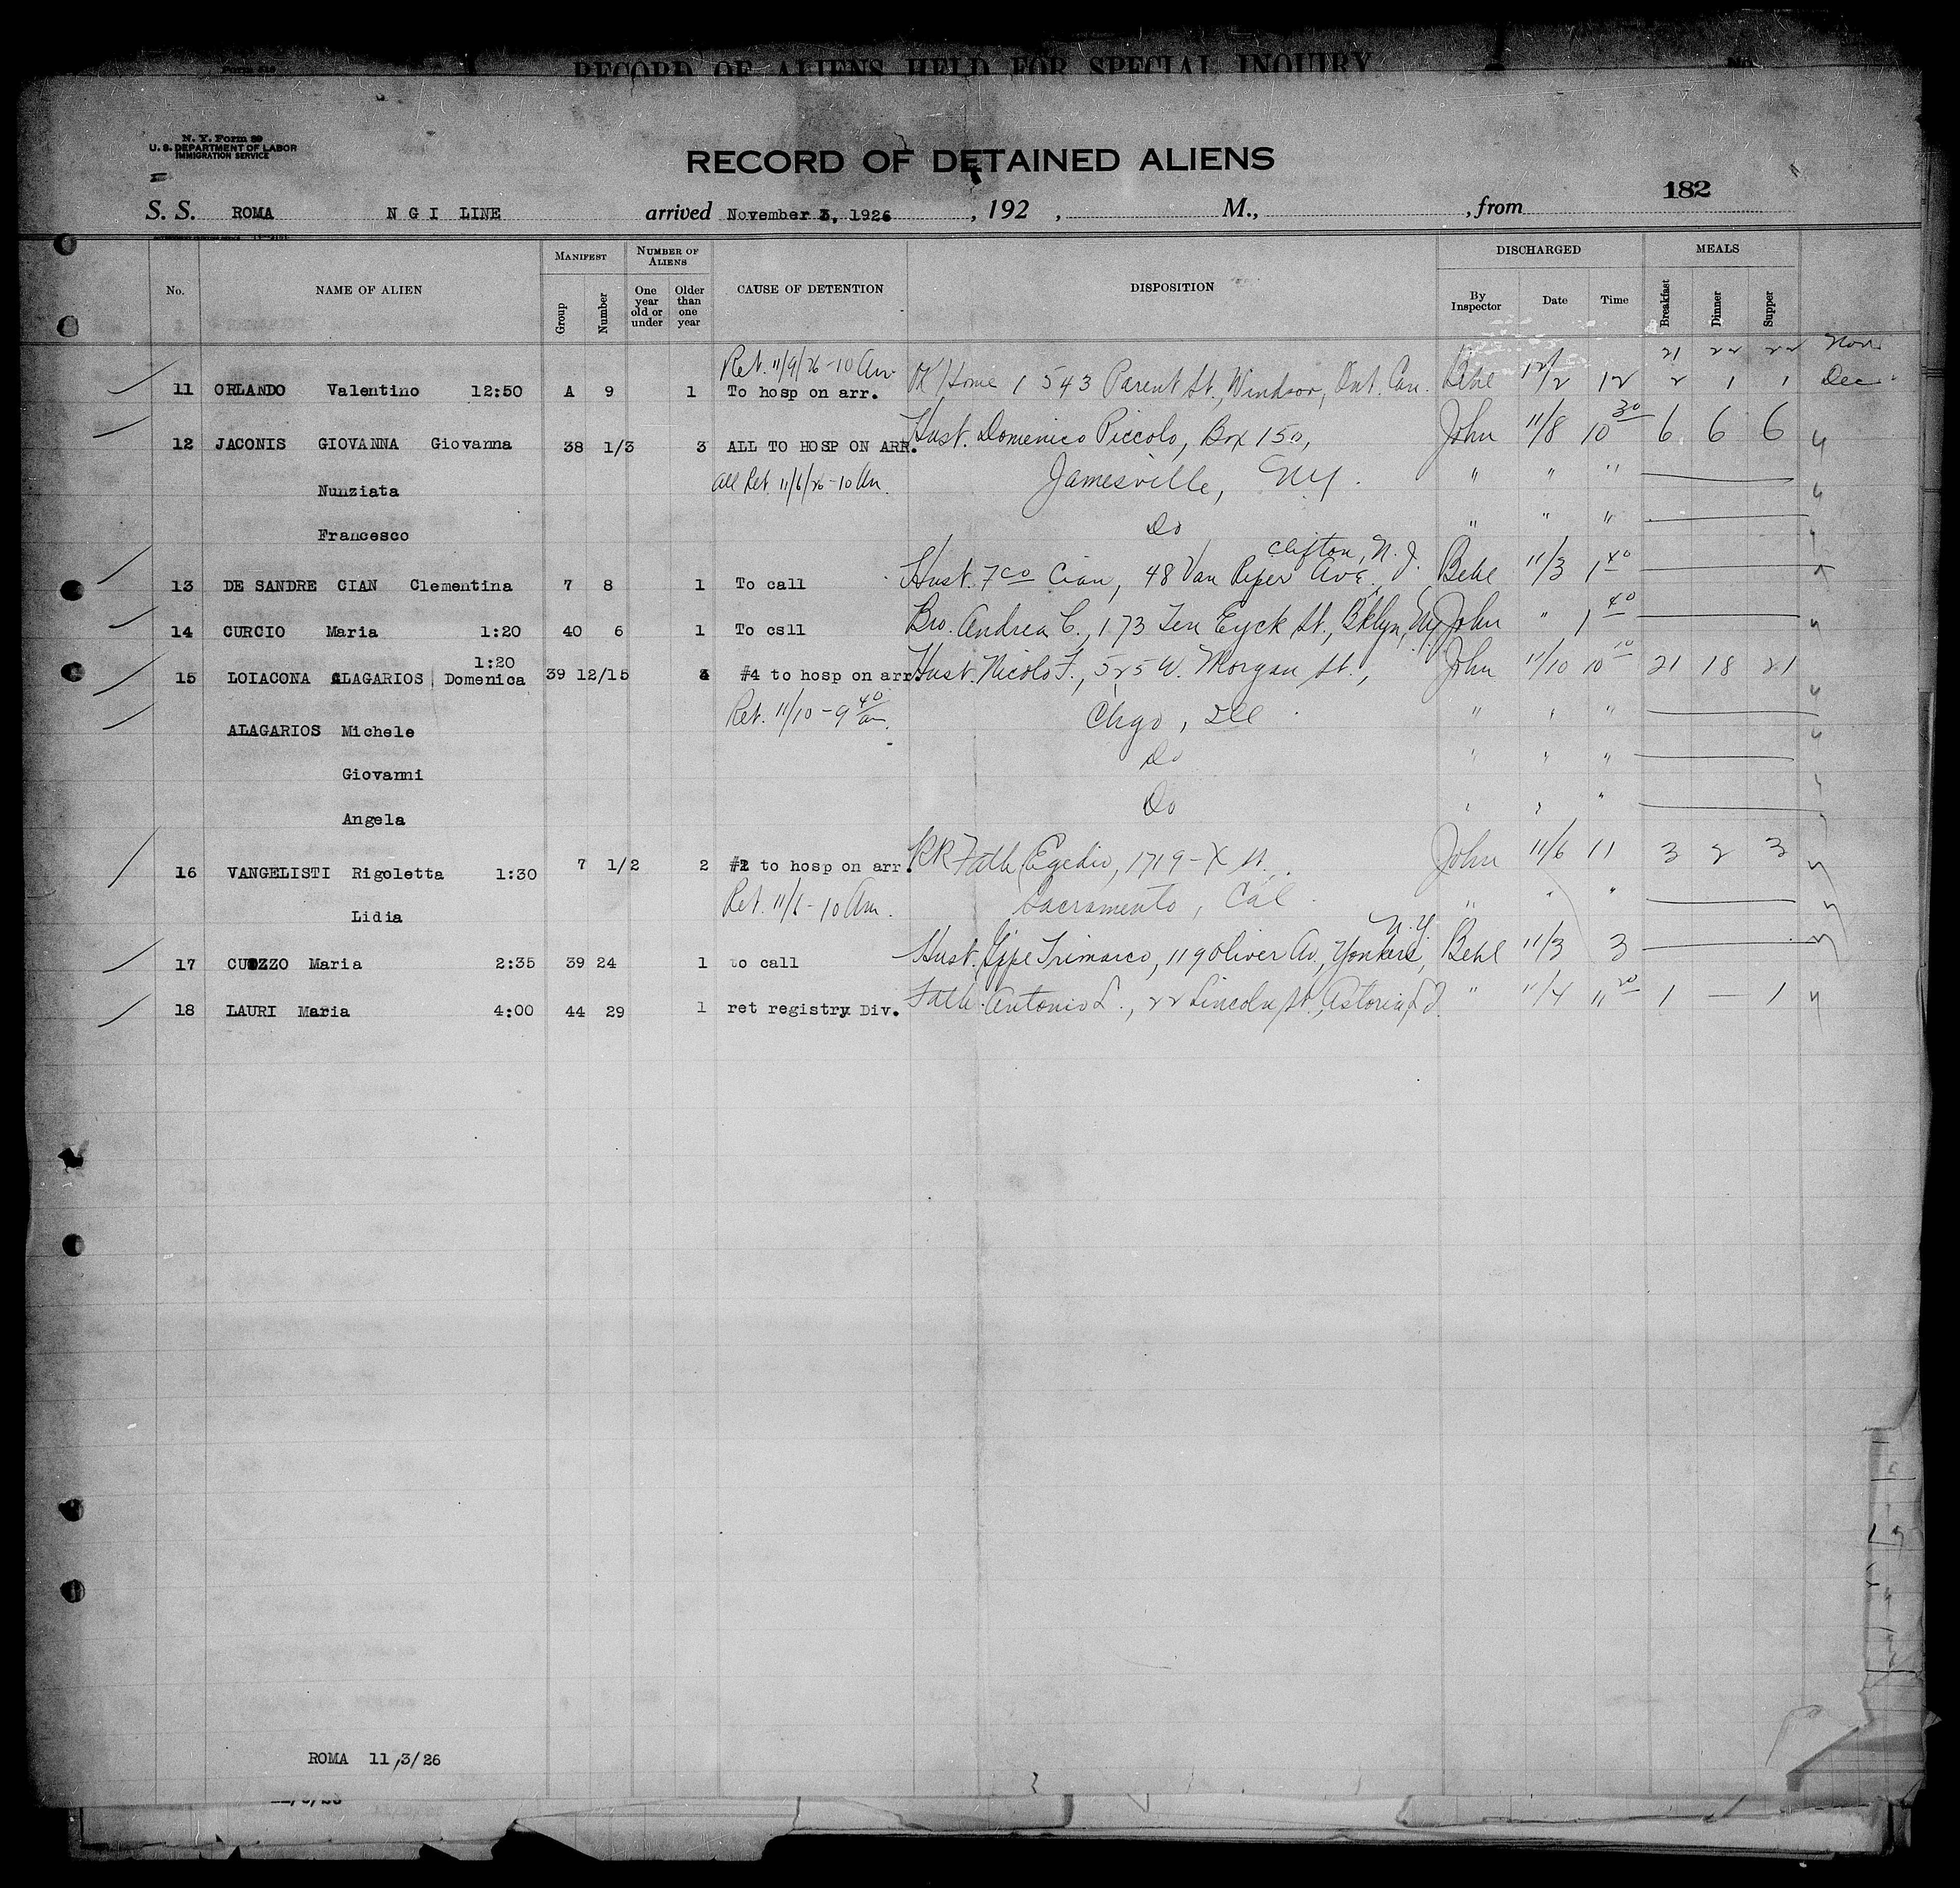 RECORD OF ALIENS HELD FOR SPECIAL INQUIRY
N. Y. Form 89
U. S. DEPARTMENT OF LABOR
IMMIGRATION SERVICE
RECORD OF DETAINED ALIENS
182
S. S. ROMA N G I LINE arrived November 3, 1926 , 192 , M., , from
No. NAME OF ALIEN MANIFEST Group Number NUMBER OF ALIENS One year old or under Older than one year CAUSE OF DETENTION DISPOSITION DISCHARGED By Inspector Date Time MEALS Breakfast Dinner Supper
Ret. 11/9/26 - 10 Am 21 22 22 Nov
11 ORLANDO Valentino 12:50 A 9 1 To hosp on arr. 1543 Parent St., Windsor, Ont. Can. Behl 12/2 12 2 1 1 Dec
12 JACONIS GIOVANNA Giovanna 38 1/3 3 ALL TO HOSP ON ARR. Hust. Domenico Piccolo, Box 150, John 11/8 10 30 6 6 6
Nunziata all Ret. 11/6/26 - 10 Am. Jamesville, NY. " " "
Francesco Do " " "
Clifton, N. J.
13 DE SANDRE CIAN Clementina 7 8 1 To call Hust. Cian, 48 Van Riper Ave. Behl 11/3 1 40
14 CURCIO Maria 1:20 40 6 1 To csll Bro. Andrea C., 173 Ten Eyck St., Bklyn, NY John " 1 40
1:20
15 LOIACONA ALAGARIOS Domenica 39 12/15 #4 to hosp on arr. Hust. Nicolo F., 525 W. Morgan St., John 11/10 10 10 21 18 21
Ret. 11/10 - 9 40 am. Chgo, Ill " " "
ALAGARIOS Michele
Giovanni Do " " "
Angela Do " " "
16 VANGELISTI Rigoletta 1:30 7 1/2 2 to hosp on arr. RR Fath Egedio, 1719 - X St., John 11/6 11 3 2 3
Lidia Ret. 11/6 - 10 Am. Sacramento, Cal " " "
N.Y.
17 CUOZZO Maria 2:35 39 24 1 to call Hust. Trimarco, 119 Oliver Av, Yonkers, Behl 11/3 3
18 LAURI Maria 4:00 44 29 1 ret registry Div. Fath. Antonio L., 22 Lincoln St., Astoria, L.I. " 11/4 11 20 1 — 1
ROMA 11/3/26